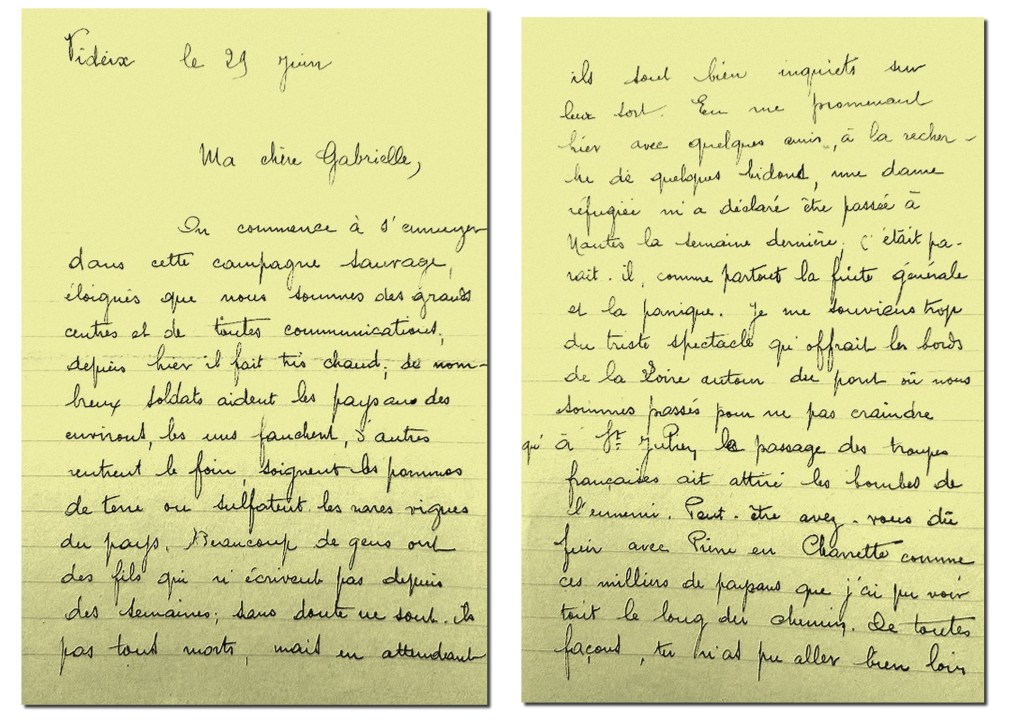 Vidéix le 29 juin
Ma chère Gabrielle,
On commence à s'ennuyer
dans cette campagne sauvage,
éloignés que nous sommes des grands
centres et de toutes communications,
depuis hier il fait très chaud; de nom-
breux soldats aident les paysans des
environs, les uns fauchent, d'autres
rentrent le foin, soignent les pommes
de terre ou sulfatent les rares vignes
du pays. Beaucoup de gens ont
des fils qui n'écrivent pas depuis
des semaines; sans doute ne sont-ils
pas tous morts, mais en attendant
ils sont bien inquiets sur
leur sort. En me promenant
hier avec quelques amis, à la recher-
che de quelques bidons, une dame
réfugiée m'a déclaré être passée à
Nantes la semaine dernière; c'était pa-
rait-il, comme partout la fuite générale
et la panique. Je me souviens trop
du triste spectacle qu'offrait les bords
de la Loire autour du pont où nous
sommes passés pour ne pas craindre
qu'à St le passage des troupes
françaises ait attiré les bombes de
l'ennemi. Peut-être avez-vous dû
fuir avec Pierre en Charrette comme
ces milliers de paysans que j'ai pu voir
tout le long du chemin. De toutes
façons, tu n'as pu aller bien loin